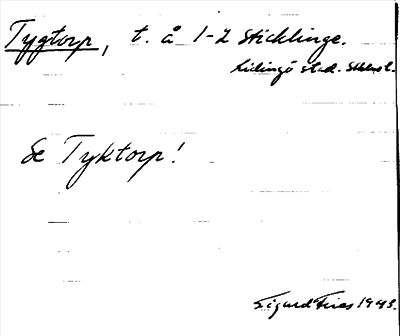 Tygtorp, t. å 1-2 Sticklinge.
Lidingö stad. Sthlms l.
Se Tyktorp!
Sigurd Fries 1943.